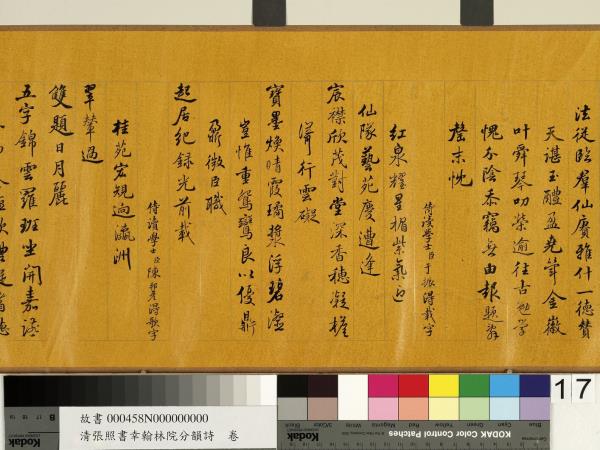 法從臨羣仙賡雅什一德贊
天諶玉醴盈堯斝金徽
叶舜琴叨榮逾往古勉學
愧分陰忝竊無由報題箋
罄末忱
侍讀學士臣于振得載字
紅泉耀星楣紫氣迎
仙隊藝苑慶遭逢
宸襟欣茂對堂深香穗凝檻
霽行雲礙
寶墨煥晴霞璚漿浮碧瀣
豈惟重鴛鸞良以優鼎
鼐微臣職
起居紀録光前載
侍讀學士臣陳邦彥得歌字
桂苑宏規逈瀛洲
翠輦過
雙題日月麗
五字錦雲羅班坐開嘉讌
17
故書 000458N000000000
清張照書幸翰林院分韻詩 卷
Kodak
KODAK Color Control Patches
Blue
Cyan
Green
Yellow
Red
Magenta
White